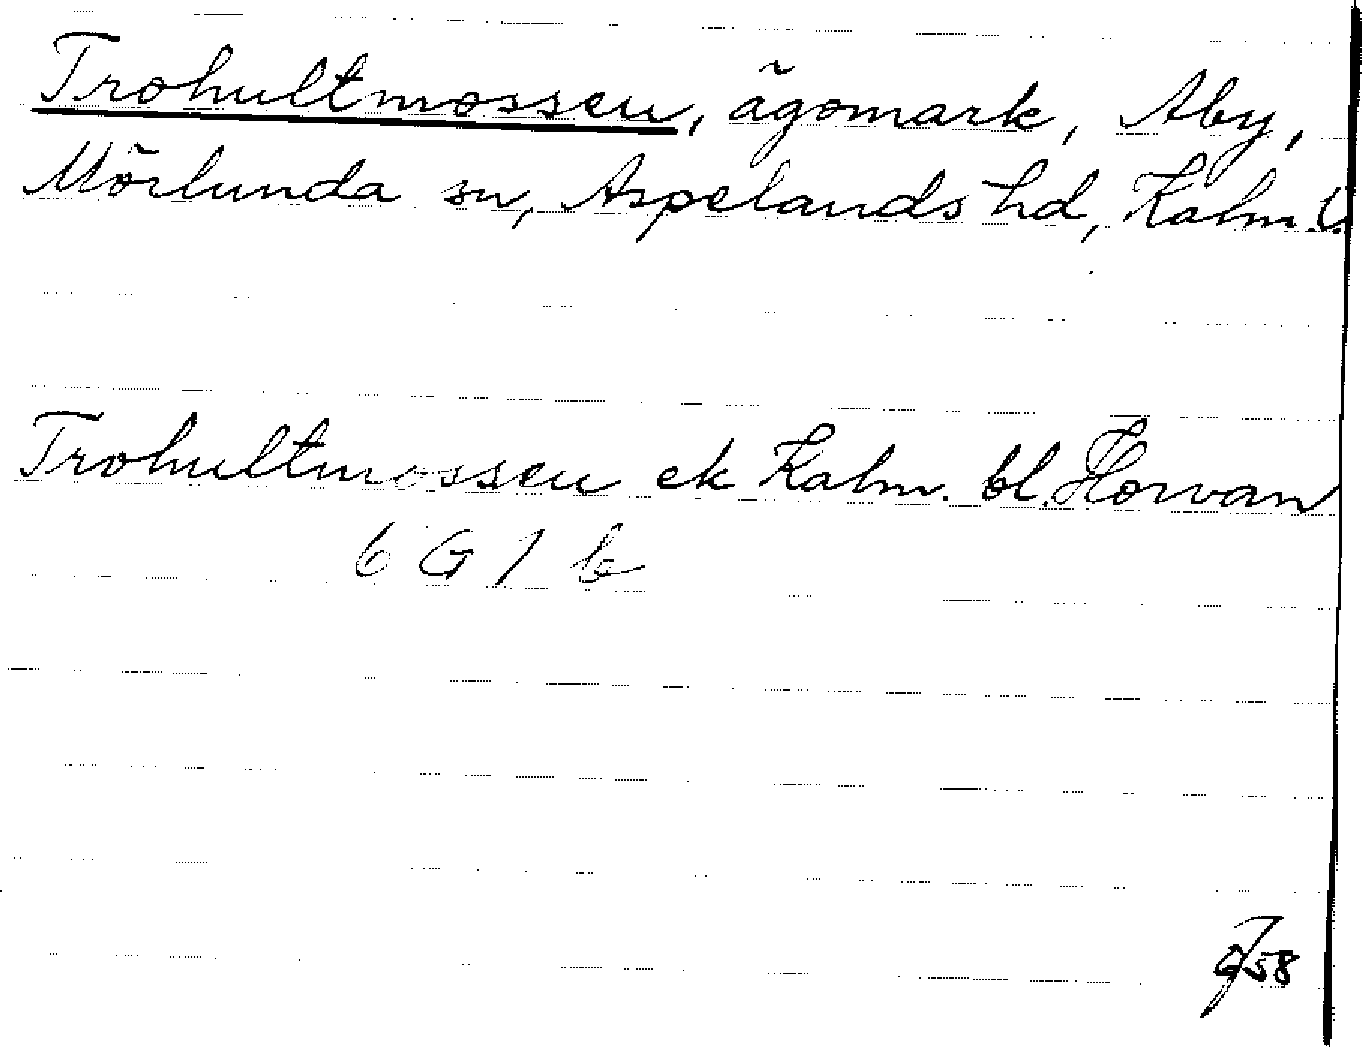 Trohultmossen, ägomark, Aby,
Mörlunda sn, Aspelands hd, Kalm. l.
Trohultmossen ek Kalm. bl. Horvan
6 G 1 b
58